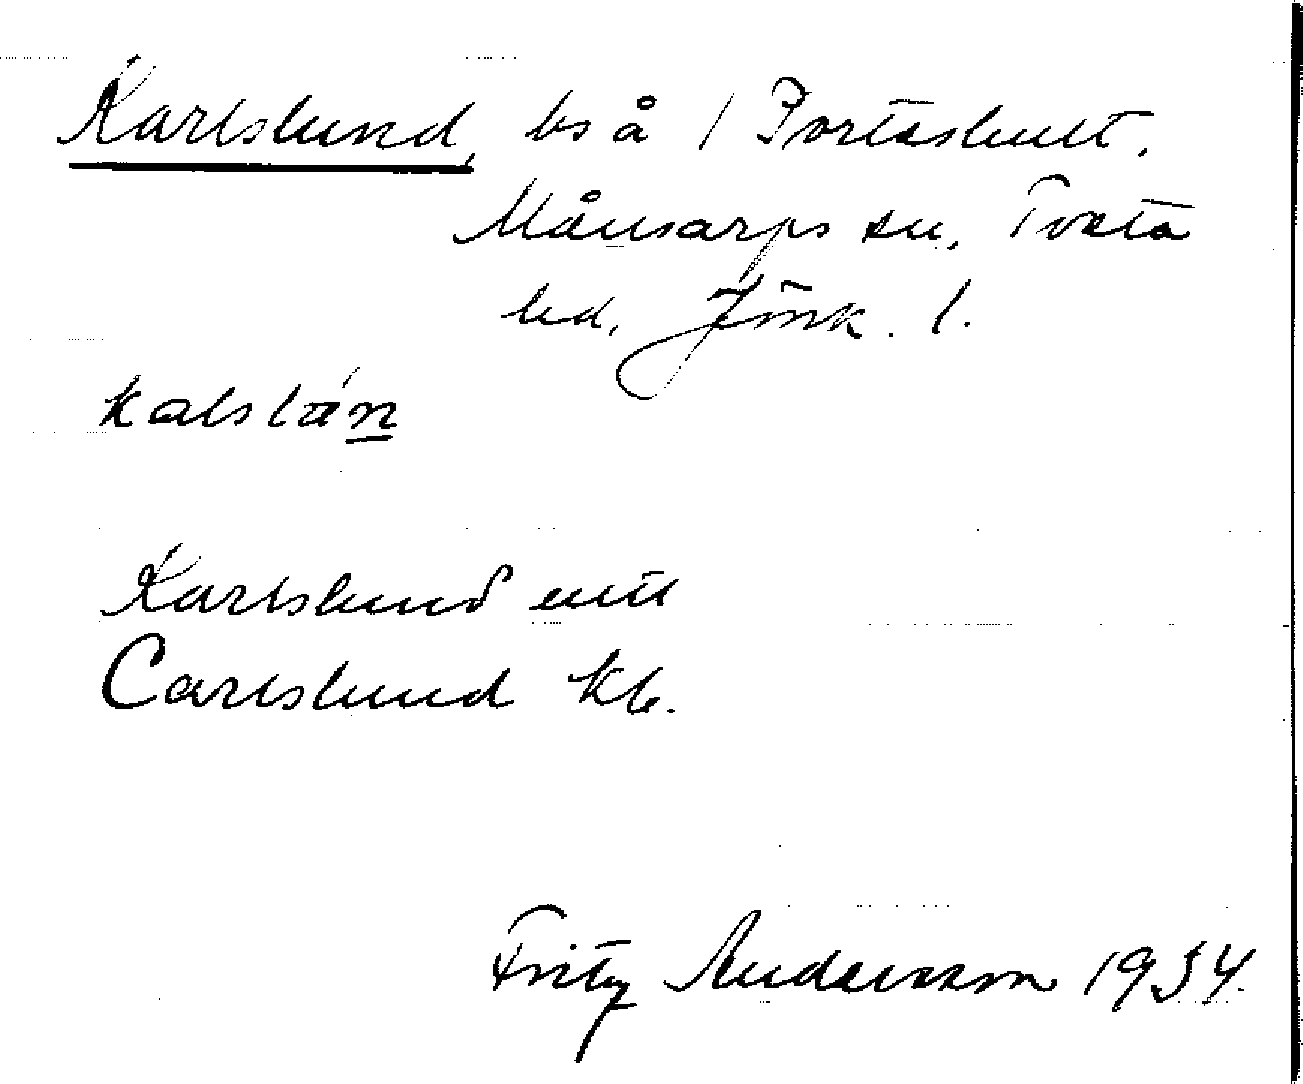 Karlslund, bs å 1 Portashult.
Månsarps sn, Tveta
hd, Jönk. l.
kalslán
Karlslund mtl
Carlslund kb.
Fritz Andersson 1934.